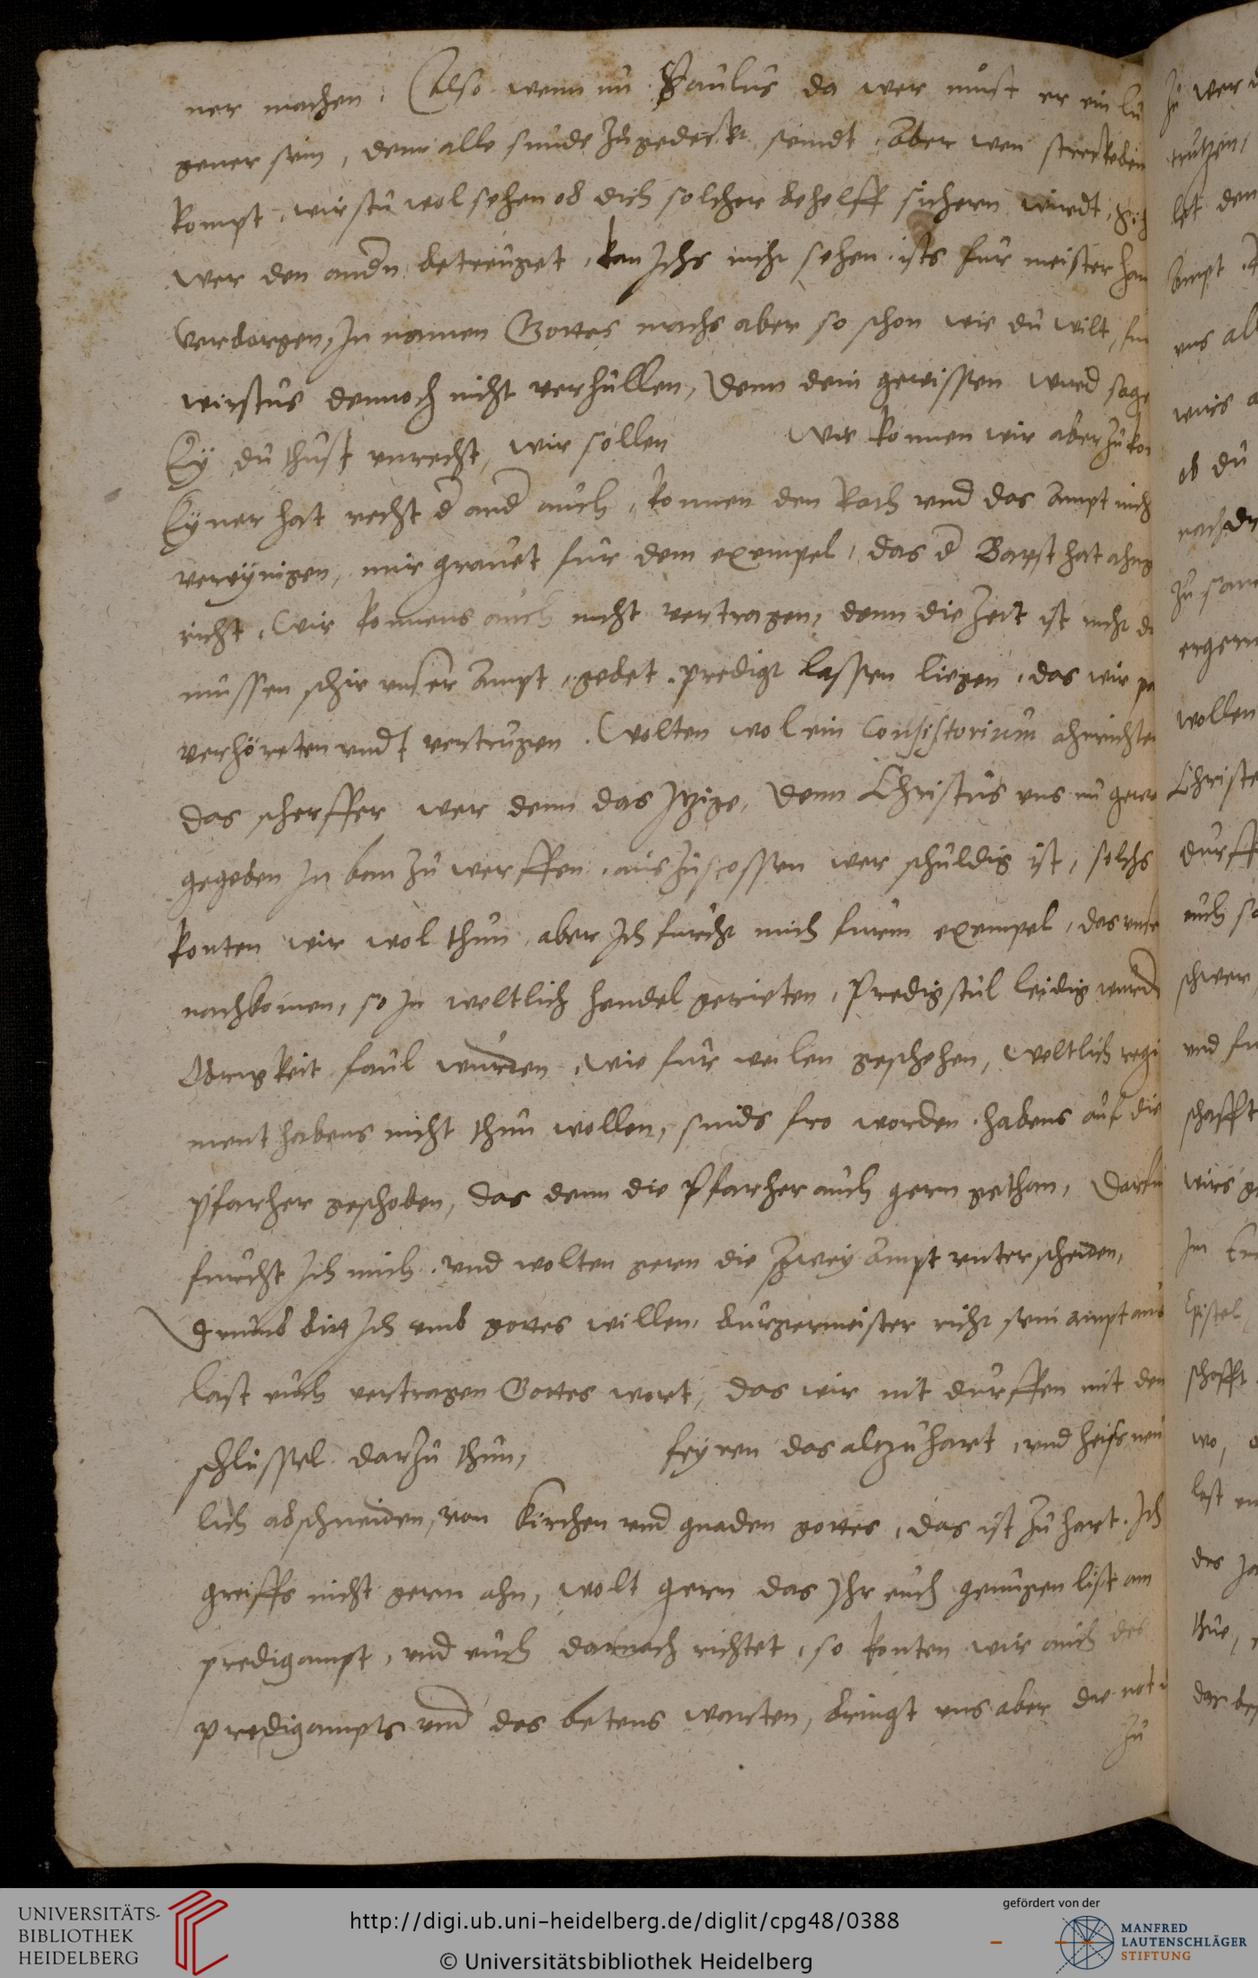 ner machen. Also wenn nu Paulus da wer must er ein lu
gener sein, denn alle sunde zugedeckt seindt, Aber wen
kompt, wirstu wol sehen ob dich solcher behelff sichern wirdt,
wer den andn betreuget, kan Ichs nicht sehen, ists fur meister
verborgen, In namen Gottes machs aber so schon wie du wilt,
wirstus dennoch nicht verhullen, Denn dein gewissen wird sage
Ey du thust unrecht, wir sollen Wie konnen wir aber zu
Eyner hat recht d and auch, konnen den Rath und das Ampt nich
vereynigen, mir grauet fur dem exempel, das d Bapst hat
richt, Wir konnens auch nicht vertragen, denn die Zeit ist nicht da
mussen schir unser Ampt, gebet, predigt lassen liegen, das wir
verhöreten undt vertrugen. Wolten wol ein Consistorium ahnrichten
das scherffer wer denn das Itzige, Denn Christus uns nu
gegeben In ban zu werffen, auszustossen wer schuldig ist, solchs
konten wir wol thun, aber Ich furcht mich furm exempel, das unse
nachkomen, so In weltlich hendel gerieten, Predigstul leidig wurde
Obrigkeit faul wurden, wie fur weilen geschehen, Weltlich regi
ment habens nicht thun wollen, sinds fro worden, habens auf die
pfarher geschoben, das denn die Pfarher auch gern gethan, Darfur
furcht Ich mich, und wolten gern die zwey Ampt unterscheiden,
Drumb bitt Ich umb gottes willen, burgermeister richt sein ampt aus
last euch vertragen Gottes wort, das wir nit durffen mit den
schlussel darzu thun, feyren das altzuhart, und heiss
lich abschneiden, von kirchen und gnaden gottes, das ist zu hart. Ich
greiffs nicht gern ahn, wolt gern das Ihr euch genugen list am
predigampt, und euch darnach richtet, so konten wir auch des
predigampts und des betens warten, bringt uns aber die not
zu
zu wer
trutzen,
let den
Ampt
uns al
wirs
ob du
nach
zu
ergern
wollen
Christe
durff
euch so
schwer
und fu
schafft
wirs
Im
Epistel
schafft
wo,
last
des
thue,
das
UNIVERSITÄTS-
BIBLIOTHEK
HEIDELBERG
http://digi.ub.uni-heidelberg.de/diglit/cpg48/0388
© Universitätsbibliothek Heidelberg
gefördert von der
MANFRED
LAUTENSCHLÄGER
STIFTUNG